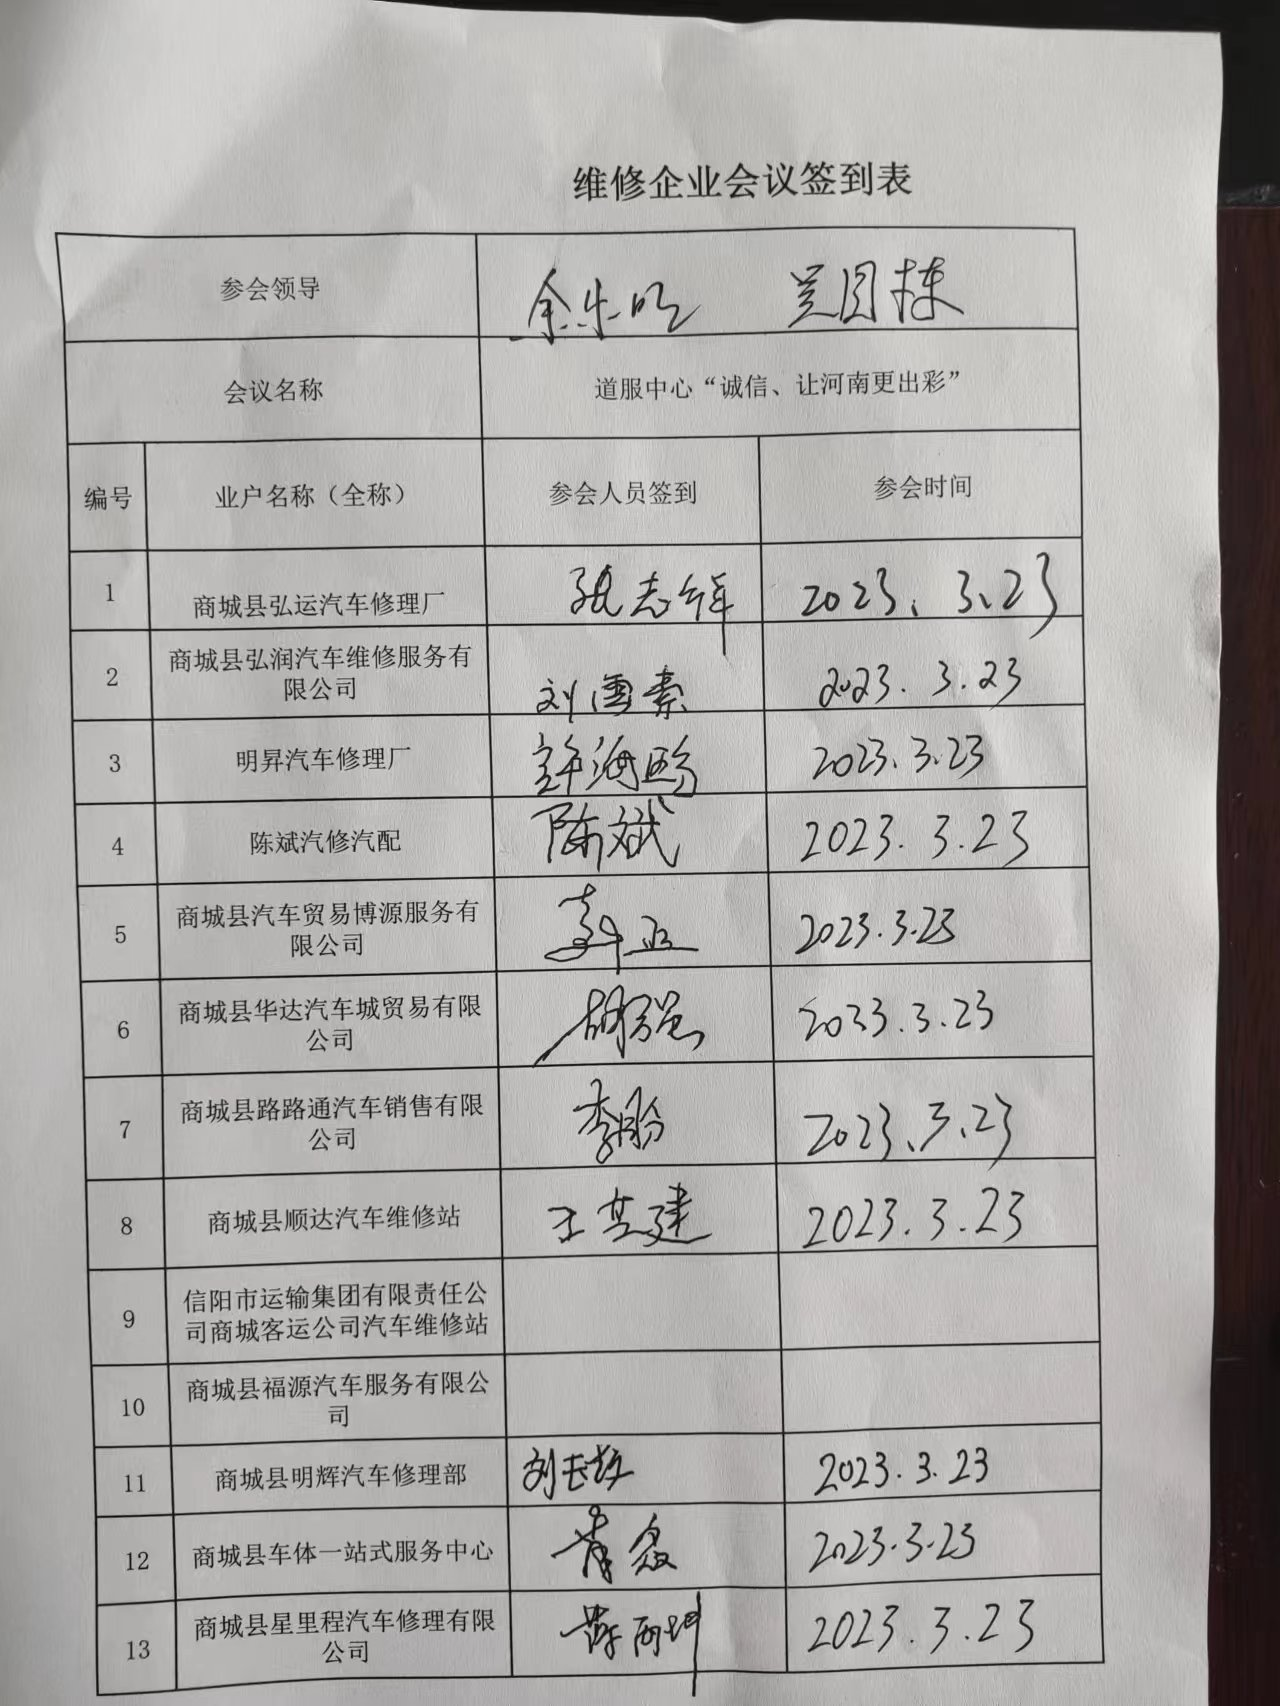 维修企业会议签到表
参会领导
会议名称 道服中心“诚信、让河南更出彩”
编号 业户名称（全称） 参会人员签到 参会时间
1 商城县弘运汽车修理厂 张志锋 2023、3、23
2 商城县弘润汽车维修服务有
限公司 刘 2023.3.23
3 明昇汽车修理厂 許海鸥 2023.3.23
4 陈斌汽修汽配 陈斌 2023.3.23
5 商城县汽车贸易博源服务有
限公司 2023.3.23
6 商城县华达汽车城贸易有限
公司 胡 2023.3.23
7 商城县路路通汽车销售有限
公司 李 2023、3、23
8 商城县顺达汽车维修站 王其建 2023.3.23
9 信阳市运输集团有限责任公
司商城客运公司汽车维修站
10 商城县福源汽车服务有限公
司
11 商城县明辉汽车修理部 刘 2023.3.23
12 商城县车体一站式服务中心 2023.3.23
13 商城县星里程汽车修理有限
公司 2023.3.23